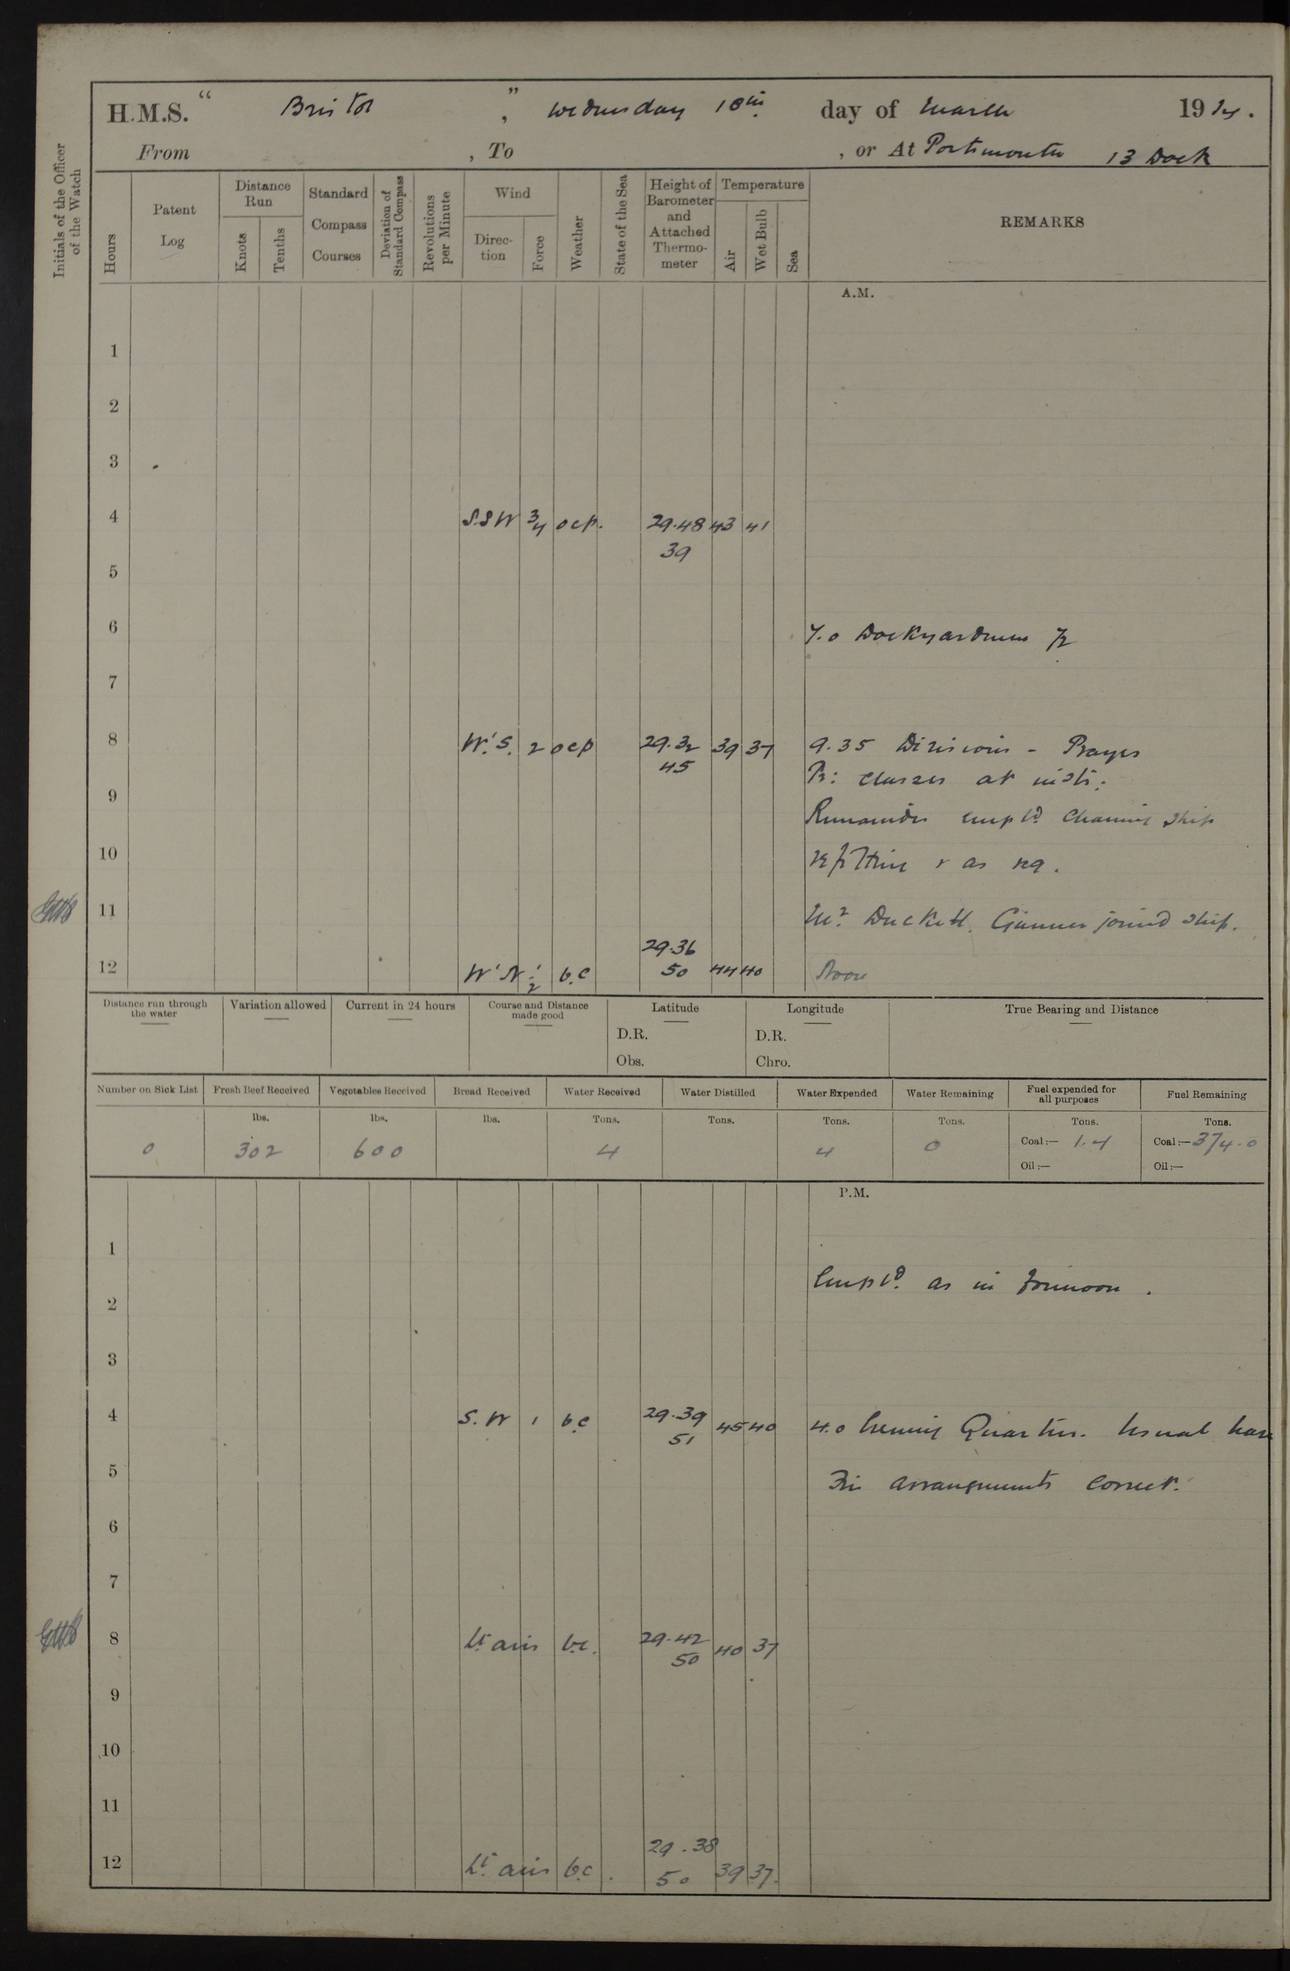 H.M.S. " Bristol ", Wednesday 18th day of March 1914.
From , To , or At Portsmouth 13 Dock
Initials of the Officer of the Watch
Hours
Patent Log
Distance Run
Knots
Tenths
Standard Compass Courses
Deviation of Standard Compass
Revolutions per Minute
Wind
Direction
Force
Weather
State of the Sea
Height of Barometer and Attached Thermometer
Temperature
Air
Wet Bulb
Sea
REMARKS
A.M.
1
2
3
4 S.S.W 3/4 ocp. 29.48 43 41
39
5
6 7.0 Dockyardmen
7
8 W'.S. 2 ocp 29.32 39 37 9.35 Divisions - Prayers
45
classes at instr:
9
Remainder empld. Cleaning Ship
10 refitting & as req.
11 Mr. Duckett. Gunner joined Ship.
29.36
12 W'N 1/2 b.c 50 44 40 Noon
Distance run through the water
Variation allowed
Current in 24 hours
Course and Distance made good
Latitude
D.R.
Obs.
Longitude
D.R.
Chro.
True Bearing and Distance
Number on Sick List Fresh Beef Received Vegetables Received Bread Received Water Received Water Distilled Water Expended Water Remaining Fuel expended for all purposes Fuel Remaining
lbs. lbs. lbs. Tons. Tons. Tons. Tons. Tons. Tons.
0 302 600 4 4 0 Coal:— 1.4 Coal:— 374.0
Oil:— Oil:—
P.M.
1
Empld. as in Forenoon.
2
3
4 S.W 1 b.c 29.39 45 40 4.0 Evening Quarters. Usual
51
5 Fire arrangements correct.
6
7
8 Lt. airs b.c. 29.42 40 37
50
9
10
11
29.38
12 Lt. airs b.c. 50 39 37.